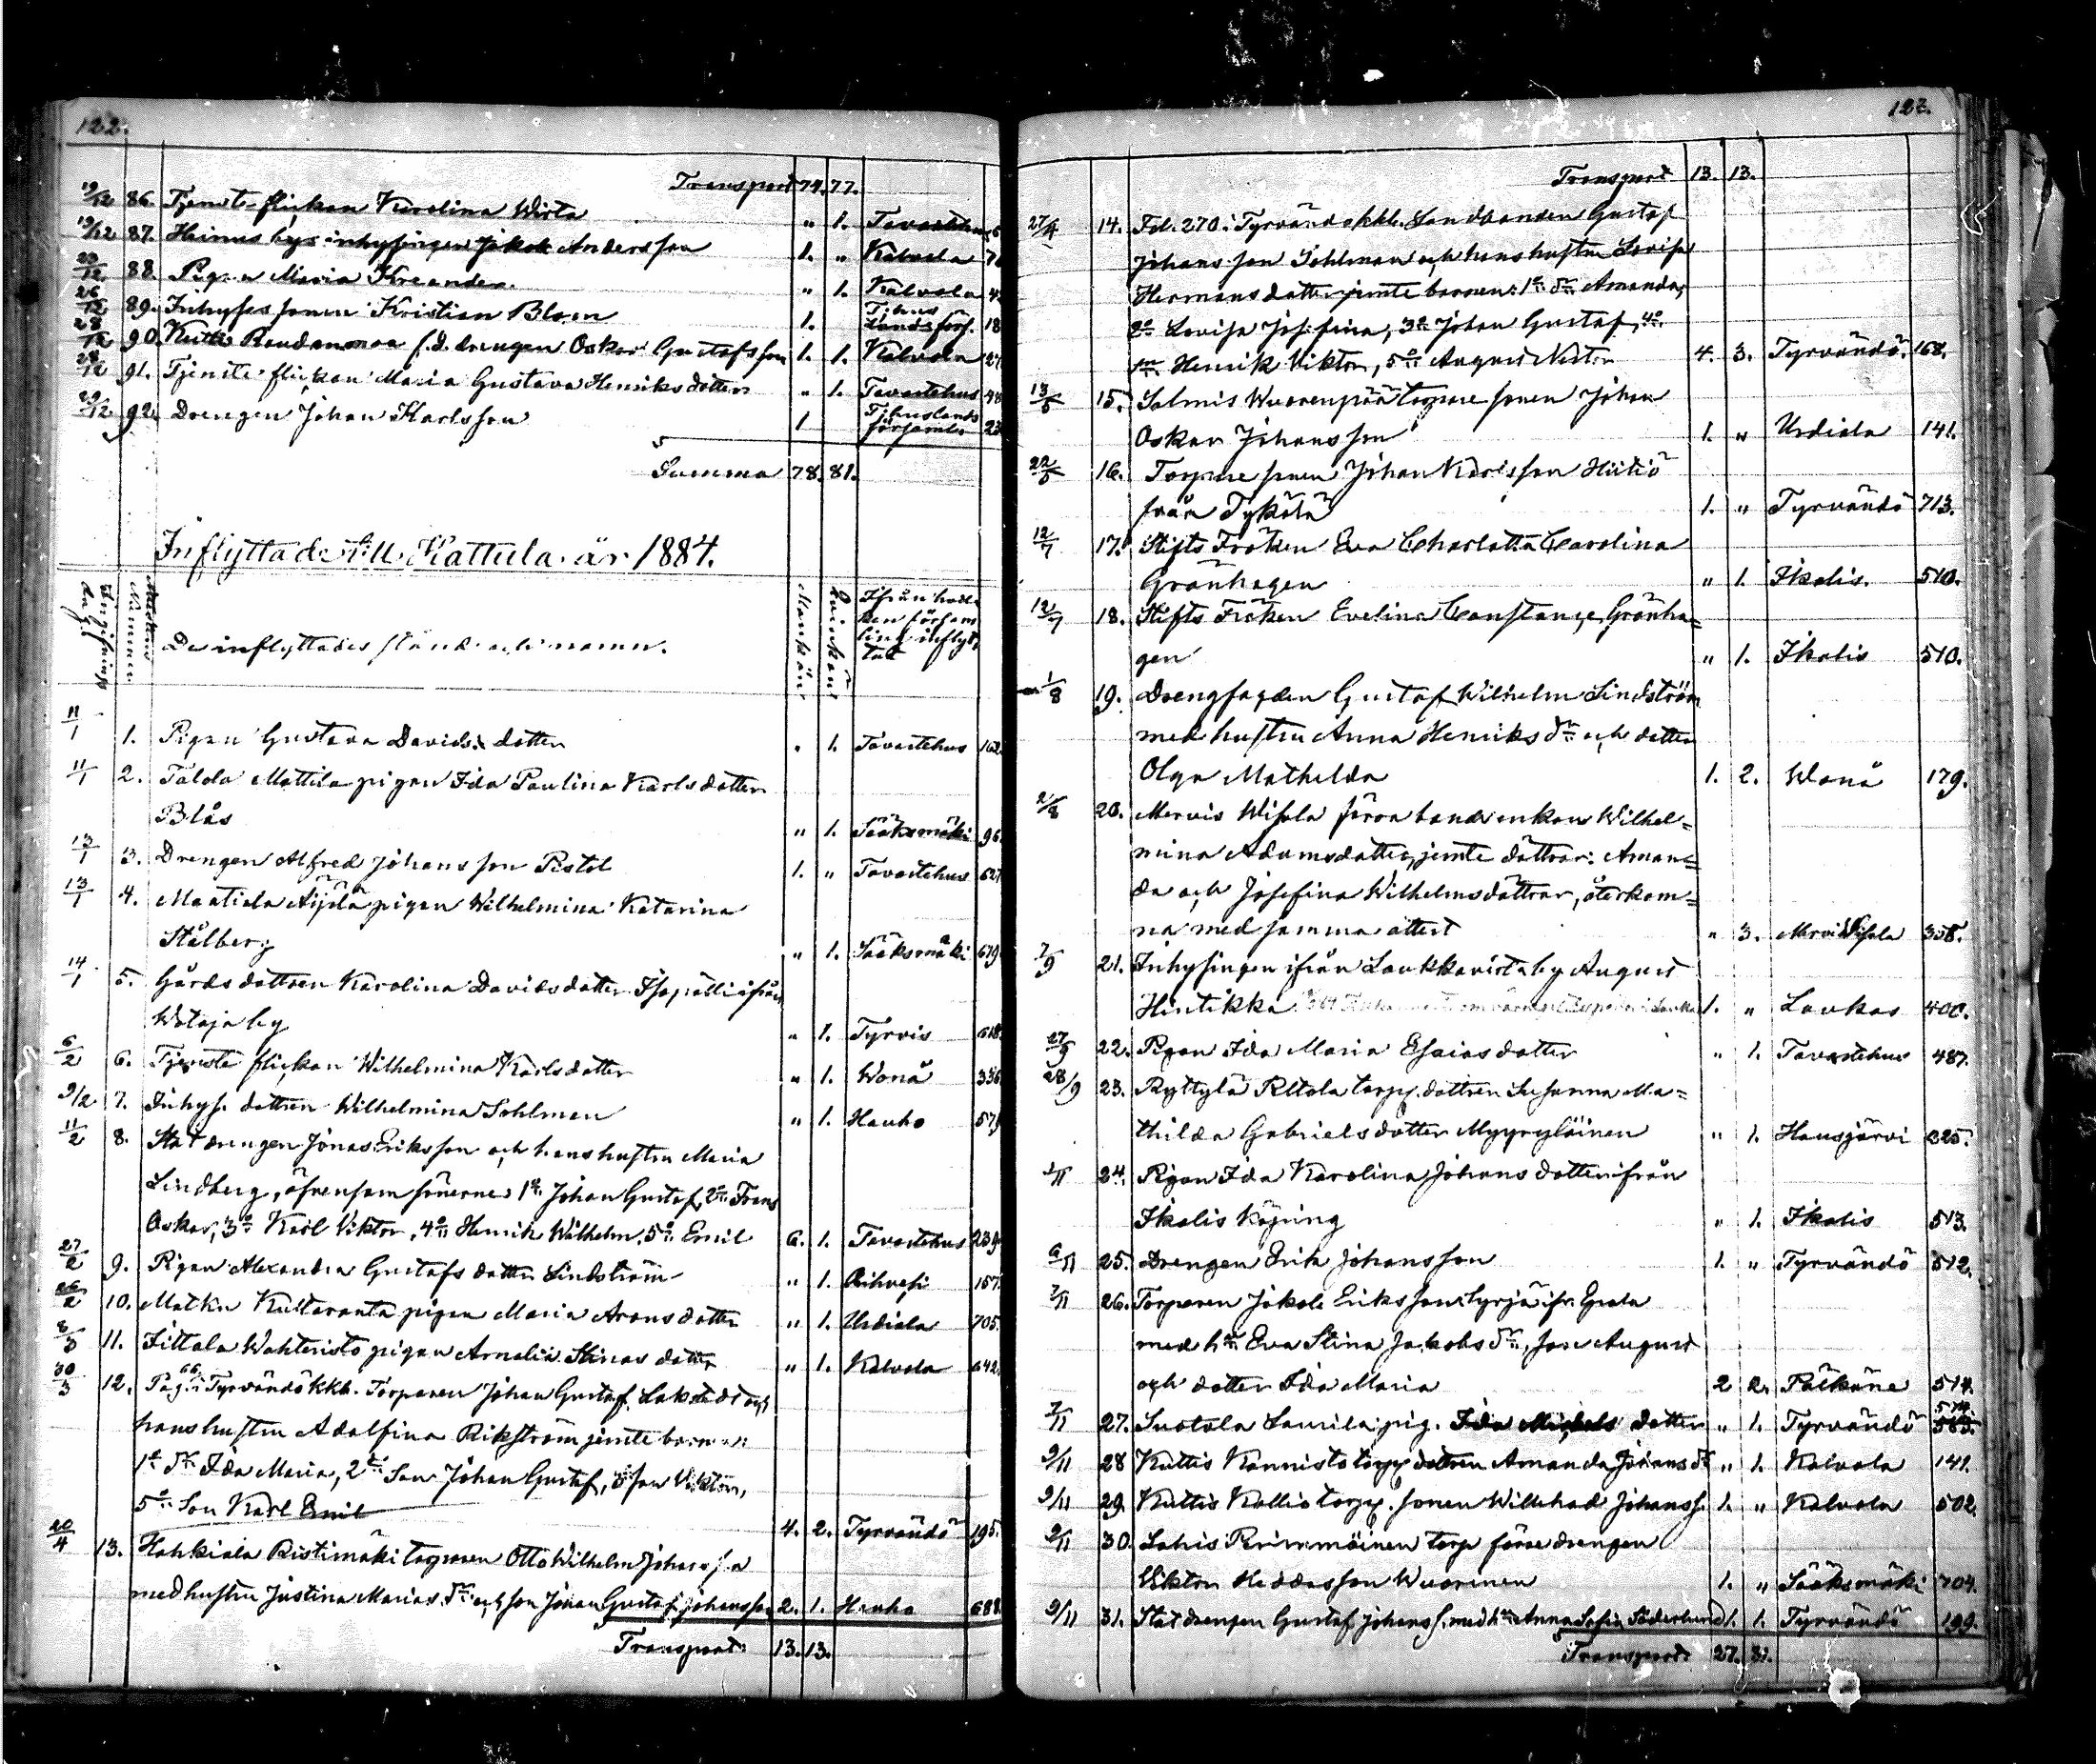 122.
Transport 74. 77.
19/12 86. Tjenste flickan Karolina Wirta " 1. Tavastehus
19/12 87. Heinus by inhysingen Jakob Andersson 1. " Kalvola
23/12 88. Pigan Maria Kreander " 1. Kalvola
26/12 89. Inhyses sonen Kristian Blom 1. T:hus Landsförs. 18
28/12 90. Kutis Raudanmaa f.d. drengen Oskar Gustafsson 1. 1. Kalvola 27
28/12 91. Tjenste flickan Maria Gustava Henriksdotter " 1. Tavastehus 48
29/12 92. Drengen Johan Karlsson 1 T:huslands församl. 23
Summa 78. 81.
Inflyttade till Hattula år 1884.
Attestens Nummer
De inflyttades stånd och namn.
Mankön
Qvinkön
Ifrån hvilken församling inflyttat
11/1 1. Pigan Gustava Davidsdotter " 1. Tavastehus 162
11/1 2. Talda Mattila pigan Ida Paulina Karlsdotter
Blås " 1. Sääksmäki 96.
13/1 3. Drengen Alfred Johansson Pistol 1. " Tavastehus 627
13/1 4. Maatiala Äijälä pigan Wilhelmina Katarina
Stålberg " 1. Sääksmäki 679
14/1 5. Gårds dottren Karolina Davidsdotter Isopälli ifrån
Wataja by " 1. Tyrvis 618
6/2 6. Tjenste flickan Wilhelmina Karlsdotter " 1. Wonå 336
9/2 7. Inhys. dottren Wilhelmina Sohlman " 1. Hauho 579
11/2 8. Stat drengen Jonas Eriksson och hans hustru Maria
Lindberg, äfvensom sönerne: 1o Johan Gustaf, 2o Frans
Oskar, 3o Karl Viktor, 4o Henrik Wilhelm, 5o Emil 6. 1. Tavastehus 239
27/2 9. Pigan Alexandra Gustafsdotter Lindström " 1. Orihvesi 157
26/2 10. Matku Kultaranta pigan Maria Aronsdotter " 1. Urdiala 705.
8/3 11. Iittala Wahteristo pigan Amalia Stinasdotter " 1. Kalvola 642
30/3 12. Pag. 66 i Tyrvändö kkb. Torparen Johan Gustaf Lakstedt och
hans hustru Adolfina Rikström jemte barnen:
1o dr Ida Maria, 2o Son Johan Gustaf, 3 son Viktor,
5o Son Karl Emil 4. 2. Tyrvändö 195.
20/4 13. Hahkiala Ristimäki torparen Otto Wilhelm Johansson
med hustru Justina Marias dr och son Johan Gustaf Johansson 2. 1. Hauho 688
Transport 13. 13.
123.
Transport 13. 13.
27/4 14. Fol. 270. i Tyrvändö kkb. Landbonden Gustaf
Johansson Sohlman och hans hustru Lovisa
Hermansdotter jemte barnen: 1o dr Amanda,
2o Lovisa Josefina, 3o Johan Gustaf, 4o
son Henrik Viktor, 5o August Nestor 4. 3. Tyrvändö. 168.
13/5 15. Salmis Wuorenpää torpare sonen Johan
Oskar Johansson 1. " Urdiala 141.
22/5 16. Torpare sonen Johan Karlsson Hiitiö
från Tykölä 1. " Tyrvändö 713.
12/7 17. Stifts Fröken Eva Charlotta Carolina
Grönhagen " 1. Ikalis. 510.
12/7 18. Stifts Fröken Evelina Constance Grönha=
gen " 1. Ikalis 510.
1/8 19. Drengfogden Gustaf Wilhelm Lindström
med hustru Anna Henriks dr och dotter
Olga Mathilda 1. 2. Wonå 179.
2/8 20. Mervis Wisala förra bondenkan Wilhel=
mina Adamsdotter, jemte döttrar: Aman=
da och Josefina Wilhelmsdöttrar, återkom=
na med samma attest " 3. 358.
7/9 21. Inhysingen ifrån Laukkavirta by August
Hintikka 1. " Laukas 400.
27/9 22. Pigan Ida Maria Esaiasdotter " 1. Tavastehus 487.
28/9 23. Ryttylä Rltala torp. dottren Susanna Ma=
thilda Gabrielsdotter Myyryläinen " 1. Hausjärvi 325.
1/11 24. Pigan Ida Karolina Johansdotter ifrån
Ikalis Köping " 1. Ikalis 513.
6/11 25. Drengen Erik Johansson 1. " Tyrvändö 512.
7/11 26. Torparen Jakob Eriksson Syrjä ifr. Epala
med hu Eva Stina Jakobs dr, son August
och dotter Ida Maria 2 2. Pälkäne 514.
7/11 27. Suotala Laurila pig. Ida Michelsdotter " 1. Tyrvändö 583.
9/11 28 Kuttis Kannisto torp. dottren Amanda Johans dr " 1. Kalvola 141.
9/11 29. Kuttis Kallio torp. sonen Willehad Johanss. 1. " Kalvola 502.
9/11 30. Lahis Perimmäinen torp förre drengen
Viktor Heddasson Wuorinen 1. " Sääksmäki 704.
9/11 31. Stat drengen Gustaf Johanss. med hu Anna Sofia Söderlund 1. 1. Tyrvändö 199.
Transport 27. 31.